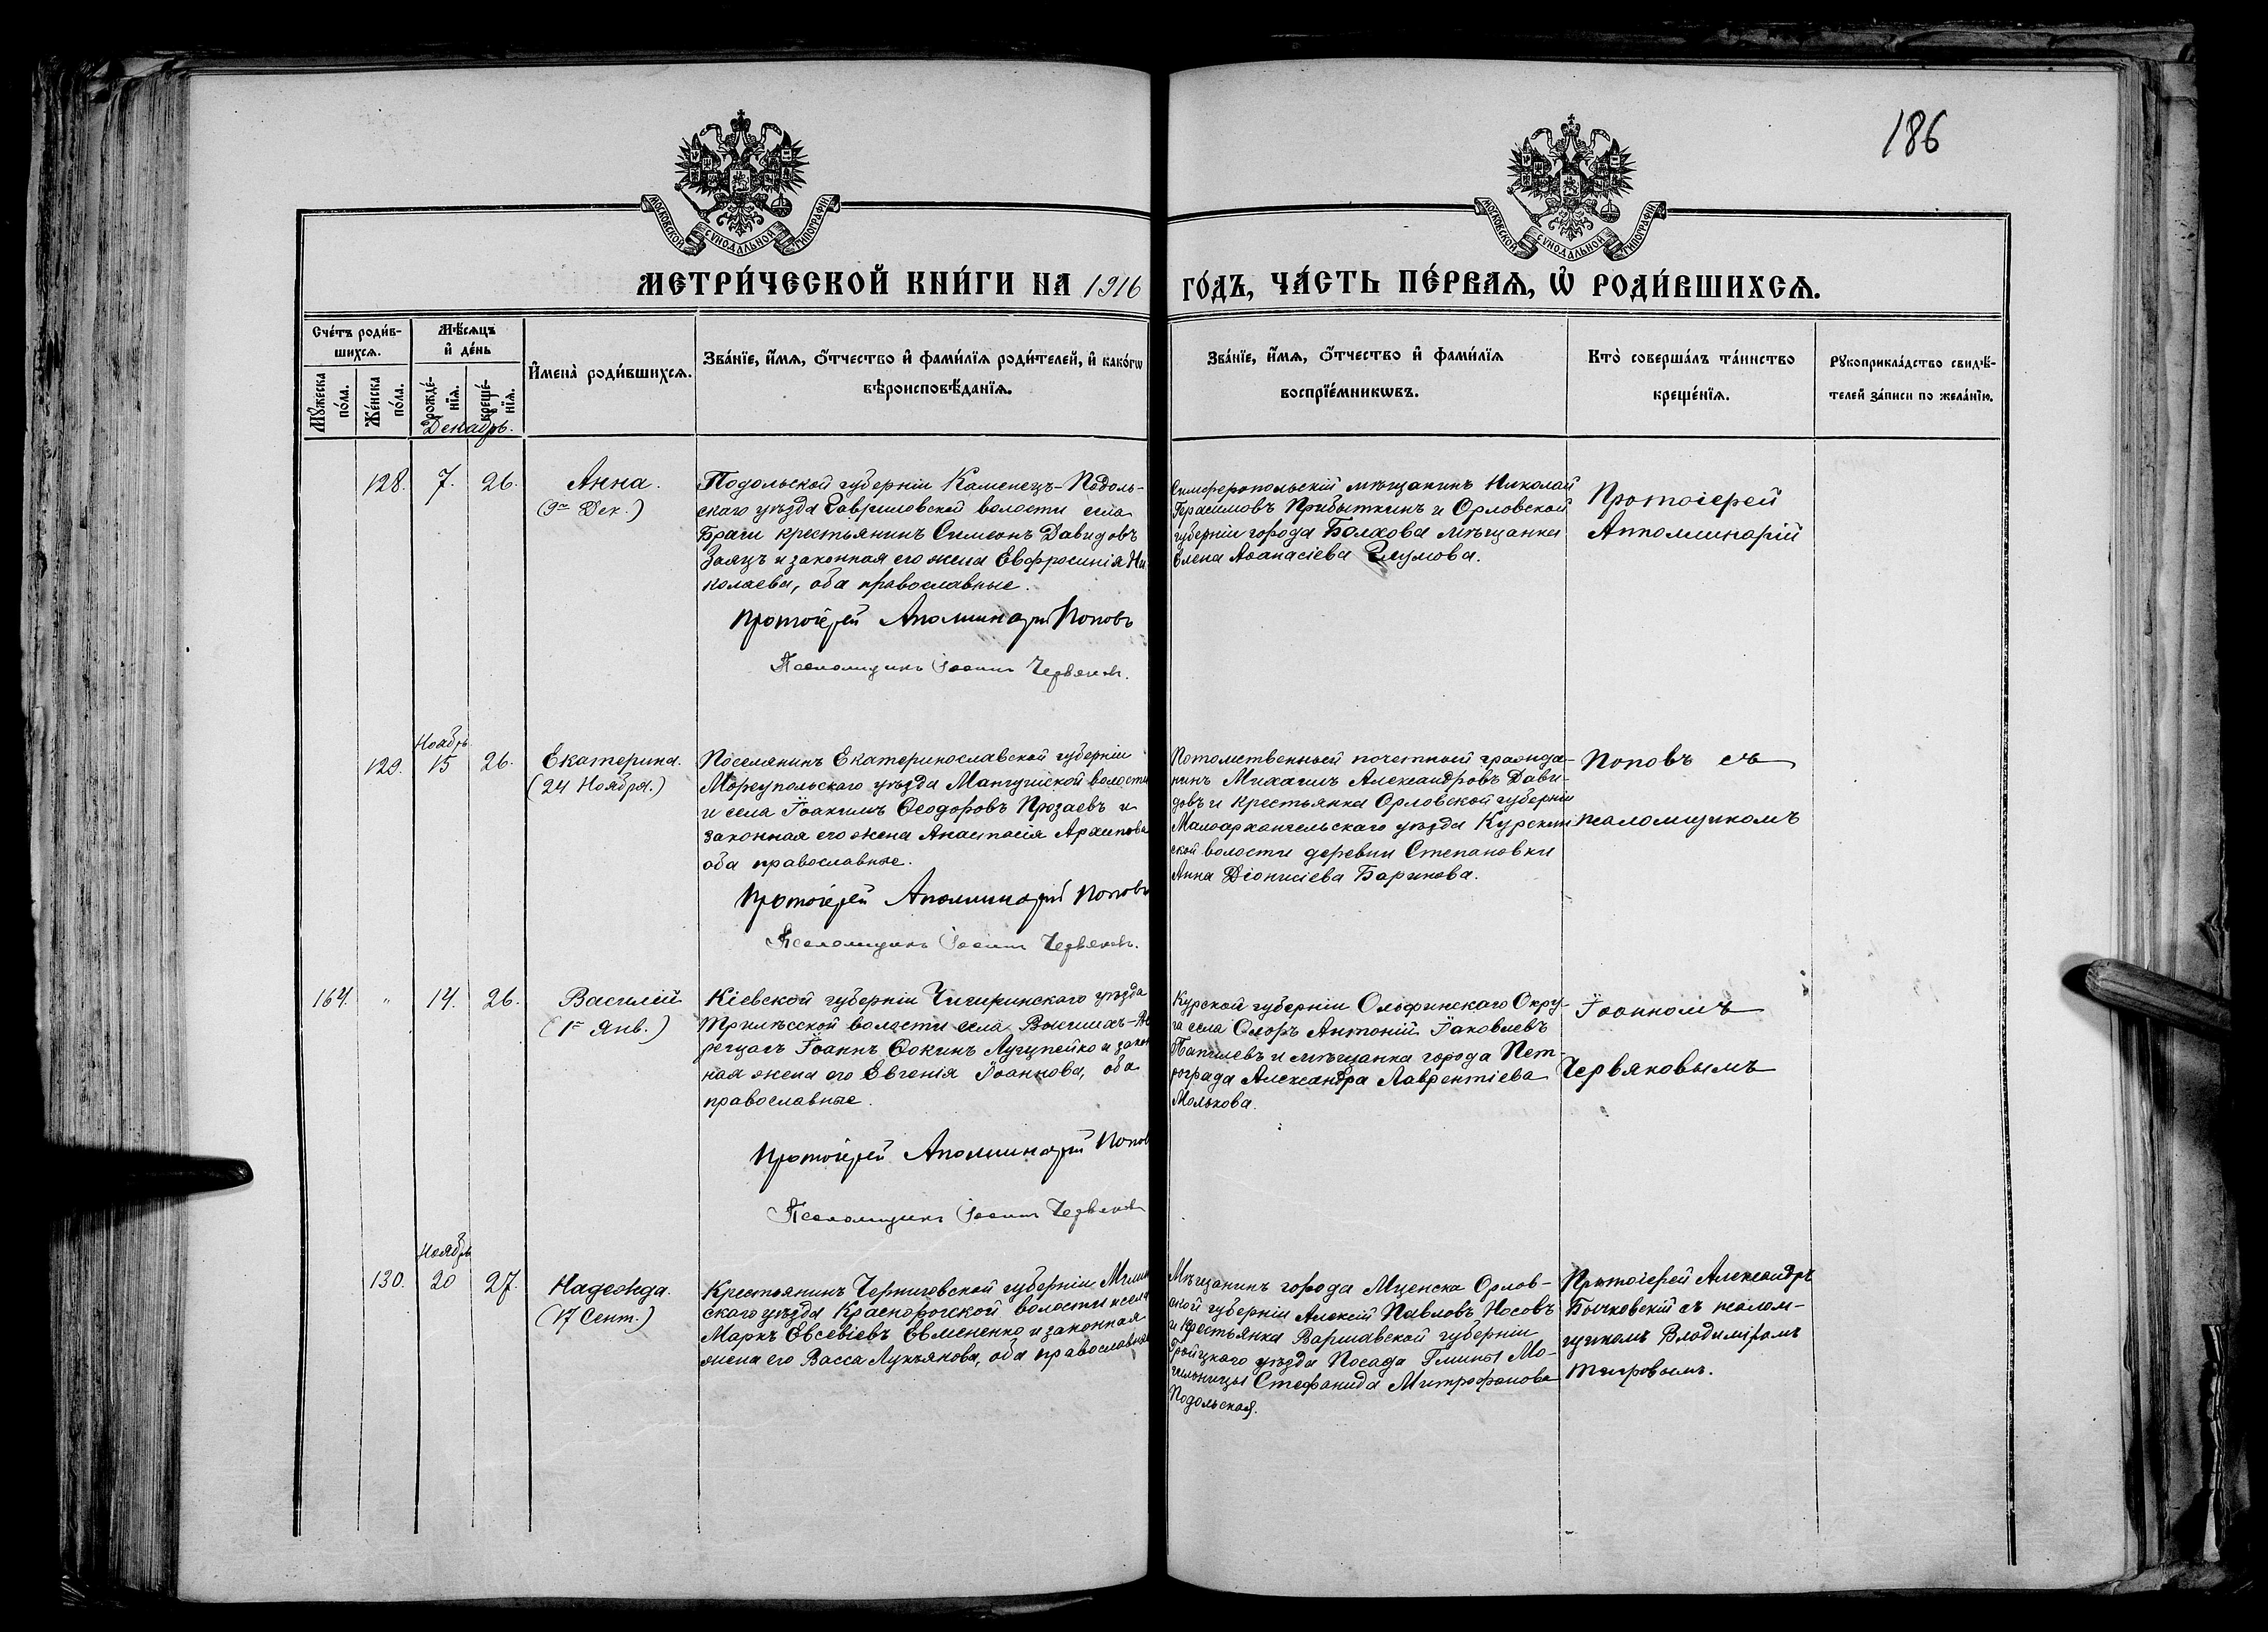 186
МОСКОВСКОЙ СѴНОДАЛЬНОЙ ТИПОГРАФІИ
МОСКОВСКОЙ СѴНОДАЛЬНОЙ ТИПОГРАФІИ
МЕТРИ́ЧЕСКОЙ КНИ́ГИ НА 1916 ГО́ДЪ, ЧА́СТЬ ПЕ́РВАѦ, Ѡ҆ РОДИ́ВШИХСѦ.
Сче́тъ роди́в-
шихсѧ.
Мѣ́сѧцъ
и҆ де́нь
Мꙋ́жеска
по́ла.
Же́нска
по́ла.
рожде́-
нїѧ.
креще́-
нїѧ.
Декабрь.
И҆мена̀ роди́вшихсѧ.
Зва́нїе, и҆́мѧ, ѻ҆́тчество и҆ фами́лїѧ роди́телей, и҆ како́гѡ
вѣроисповѣ́данїѧ.
Зва́нїе, и҆́мѧ, ѻ҆́тчество и҆ фами́лїѧ
воспрїе́мникѡвъ.
Кто̀ соверша́лъ та́инство
креще́нїѧ.
Рꙋкоприкла́дство свидѣ́-
телей за́писи по жела́нїю.
128. 7. 26.
Анна.
(9го Дек.)
Подольской губерніи Каменецъ-Подоль-
скаго уѣзда Гавриловской волости села
Браги крестьянинъ Симеонъ Давидовъ
Заяцъ и законная его жена Евфросинія Ни-
колаева, оба православные.
Протоіерей Аполлинарій Поповъ
Псаломщикъ Іоаннъ Червяковъ.
Симферопольскій мѣщанинъ Николай
Герасимовъ Прибыткинъ и Орловской
губерніи города Болхова мѣщанка
Елена Аѳанасіева Глумова.
Протоіерей
Апполлинарій
Ноябрь
129. 15 26.
Екатерина.
(24 Ноября.)
Поселянинъ Екатеринославской губерніи
Моріупольскаго уѣзда Мангушской волости
и села Іоакимъ Ѳеодоровъ Прозаевъ и
законная его жена Анастасія Архипова
оба православные.
Протоіерей Аполлинарій Поповъ
Псаломщикъ Іоаннъ Червяковъ.
Потомственный почетный гражда-
нинъ Михаилъ Александровъ Дави-
довъ и крестьянка Орловской губерніи
Малоархангельскаго уѣзда
ской волости деревни Степановки
Анна Діонисіева Баринова.
Поповъ съ
псаломщикомъ
164. " 14. 26.
Василій
(1е Янв.)
Кіевской губерніи Чигиринскаго уѣзда
Трилѣсской волости села
Іоаннъ Ѳокинъ и закон
ная жена его Евгенія Іоаннова, оба
православные.
Протоіерей Аполлинарій Попов
Псаломщикъ Іоаннъ Червяков
Курской губерніи Ольфинскаго Окру-
га села Антоній Іаковлевъ
и мѣщанка города Пет-
рограда Александра Лаврентіева
Молькова.
Іоанномъ
Червяковымъ
Ноябрь
130. 20 27.
Надежда.
(17 Сент.)
Крестьянинъ Черниговской губерніи Мглин
скаго уѣзда Краснорогской волости и села
Маркъ Евсевіевъ Евмененко и законная
жена его Васса Лукьянова, оба православные
Мѣщанинъ города Мценска Орлов-
ской губерніи Алексій Павловъ Носовъ
и крестьянка Варшавской губерніи
Гройцкаго уѣзда Посада Гмины Мо-
гильницы Стефанида Митрофанова
Подольская.
Протоіерей Александръ
Бычковскій съ псалом-
щикомъ Владиміромъ